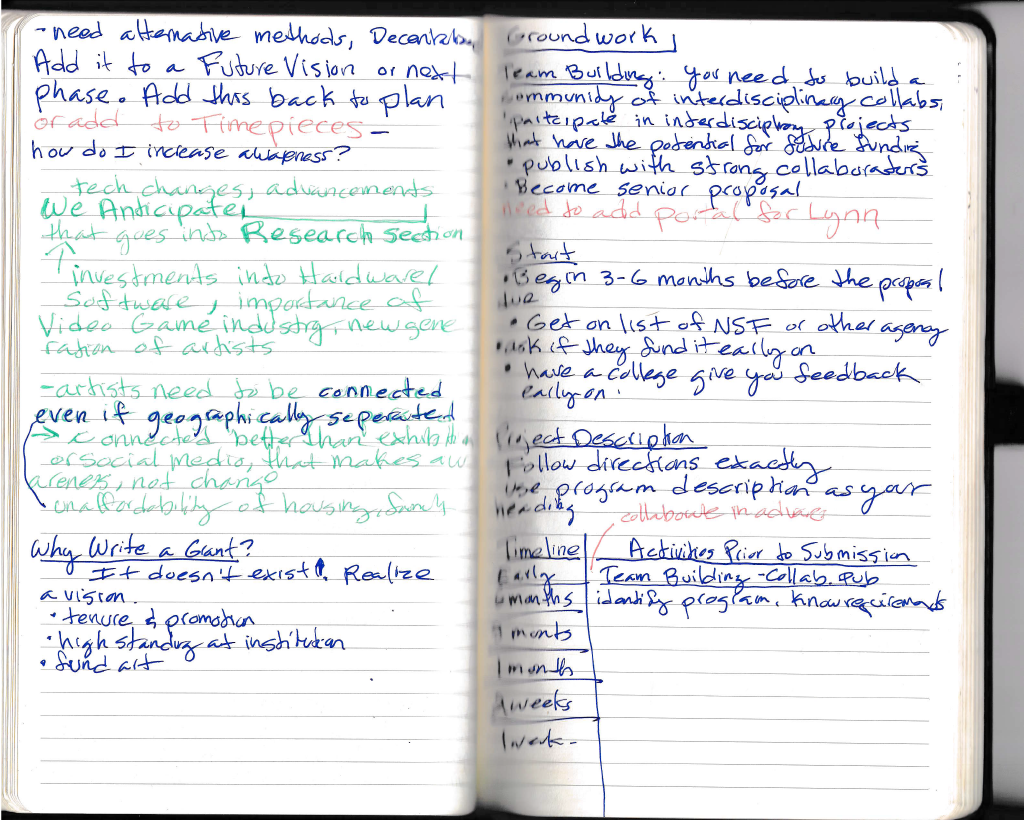 - need alternative methods,
Add it to a Future Vision or next
phase. Add this back to plan
or add to Timepieces -
how do I increase awareness?
tech changes, advancements
We Anticipate
that goes into Research section
investments into Hardware/
Software, importance of
Video Game industry, new gene
ration of artists
- artists need to be connected
even if geographically seperated
connected better than exhibition
or social media, that makes aw
areness, not change
unaffordability of housing, family
Why Write a Grant?
It doesn't exist!. Realize
a vision.
• tenure & promotion
• high standing at institution
• fund art
Groundwork
Team Building: You need to build a
community of interdisciplinary collabs,
participate in interdisciplinary projects
that have the potential for future funding
• publish with strong collaborators
• Become senior proposal
need to add portal for Lynn
Start
• Begin 3-6 months before the proposal
due
• Get on list of NSF or other agency
• ask if they fund it early on
• have a college give you feedback
early on.
Project Description
Follow directions exactly
use program description as your
heading
collaborate in advance
Timeline Activities Prior to Submission
Early Team Building - Collab. Pub
months identify program, know requirements
months
1 month
weeks
1 week -